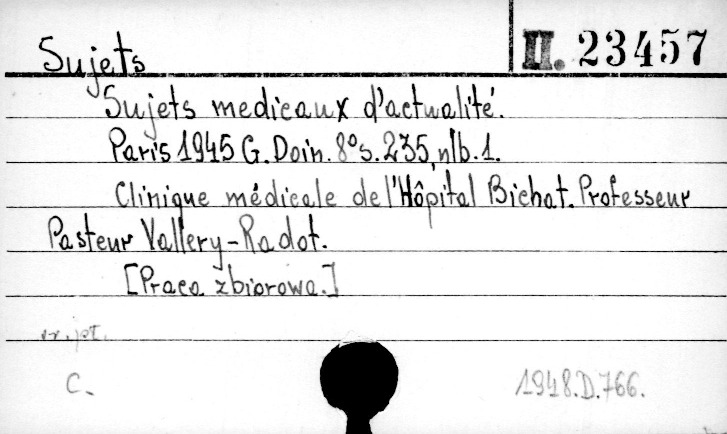 Sujets
II. 23457
Sujets medicaux d'actualité.
Paris 1945 G. Doin. 8° s. 235, nlb. 1.
Clinique médicale de l'Hôpital Bichat. Professeur
Pasteur Vallery-Radot.
[Praca zbiorowa.]
C.
1948.D.766.